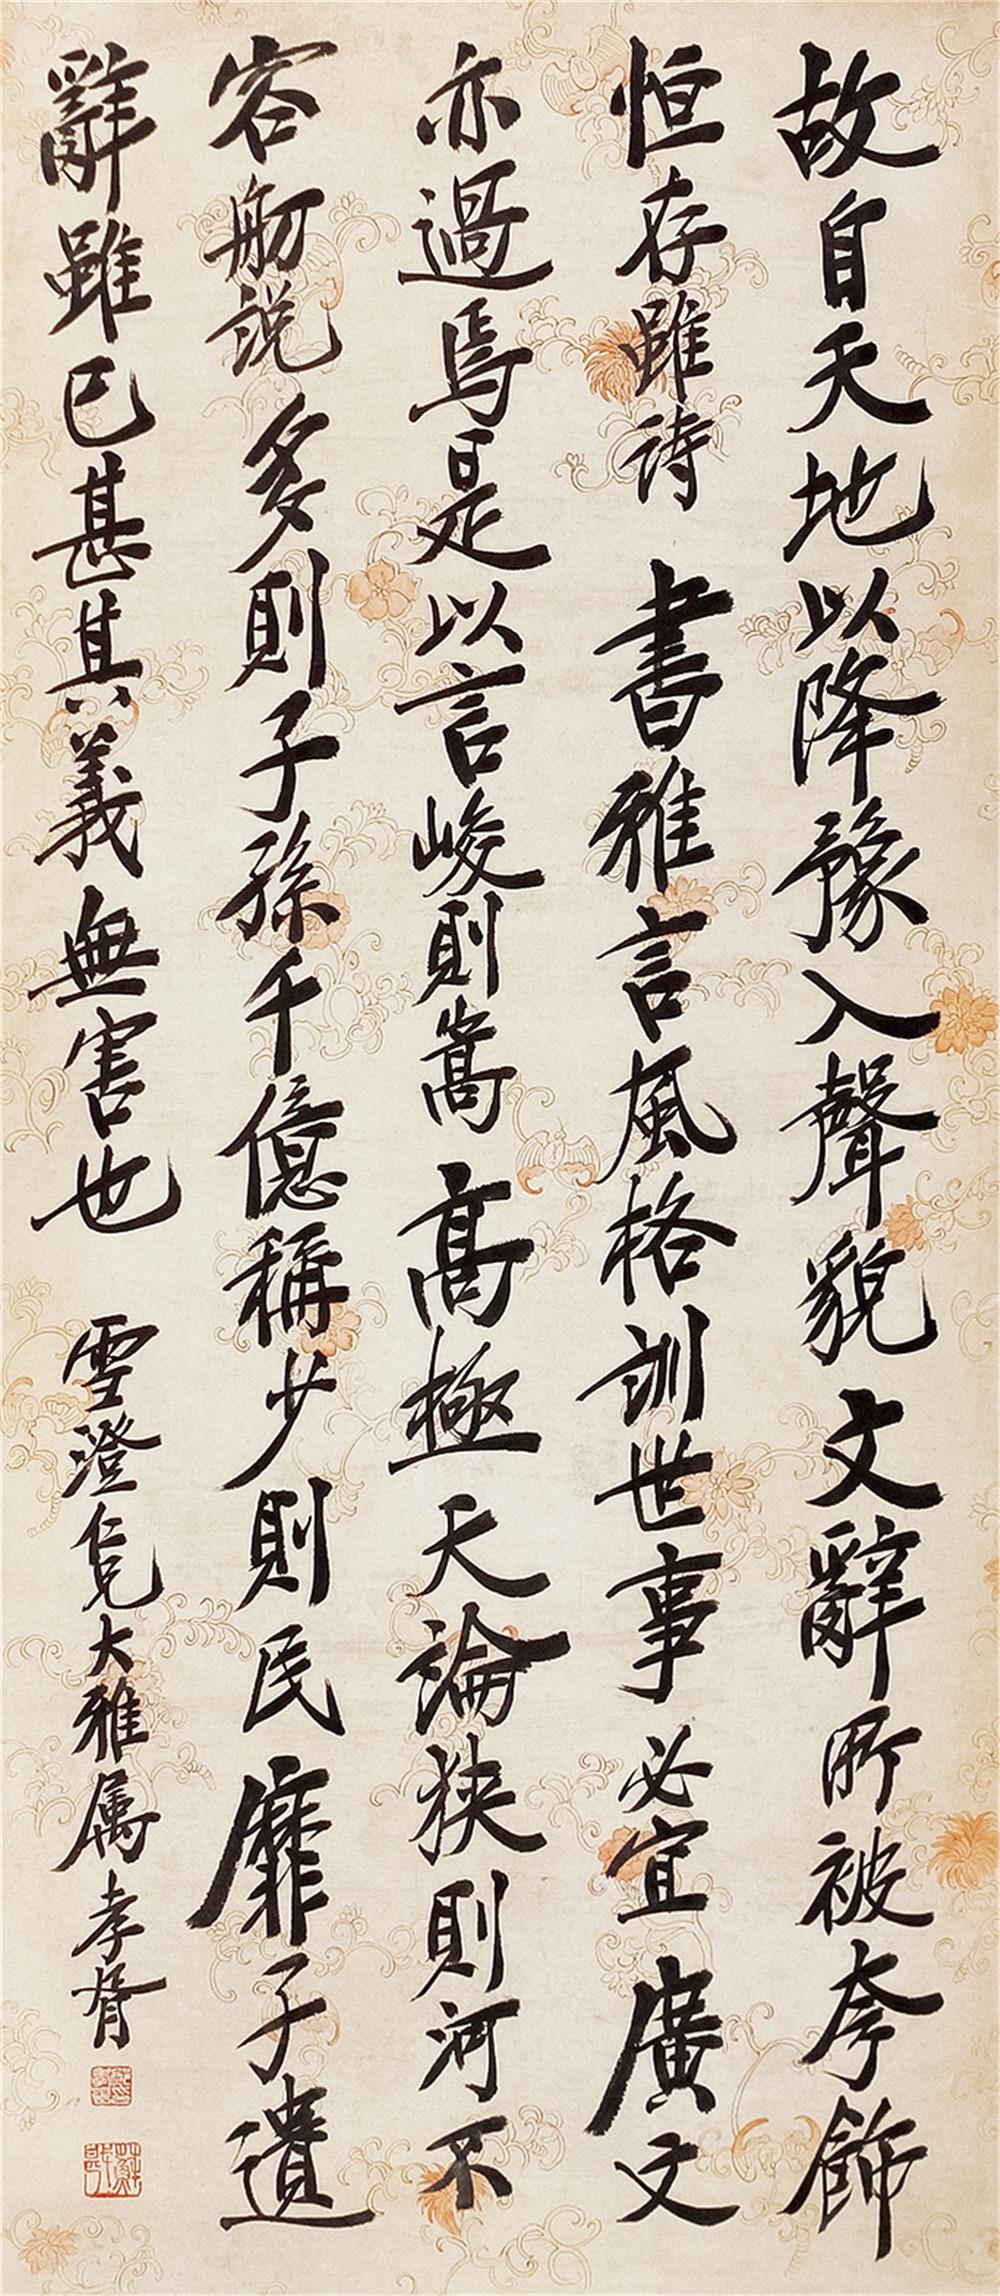 故自天地以降豫入聲貌文辭所被夸飾
恒存雖詩書雅言風格訓世事必宜廣文
亦過焉是以言峻則嵩高極天論狹則河不
容舠說多則子孫千億稱少則民靡孑遺
辭雖已甚其義無害也 雪澄仁兄大雅属 孝胥